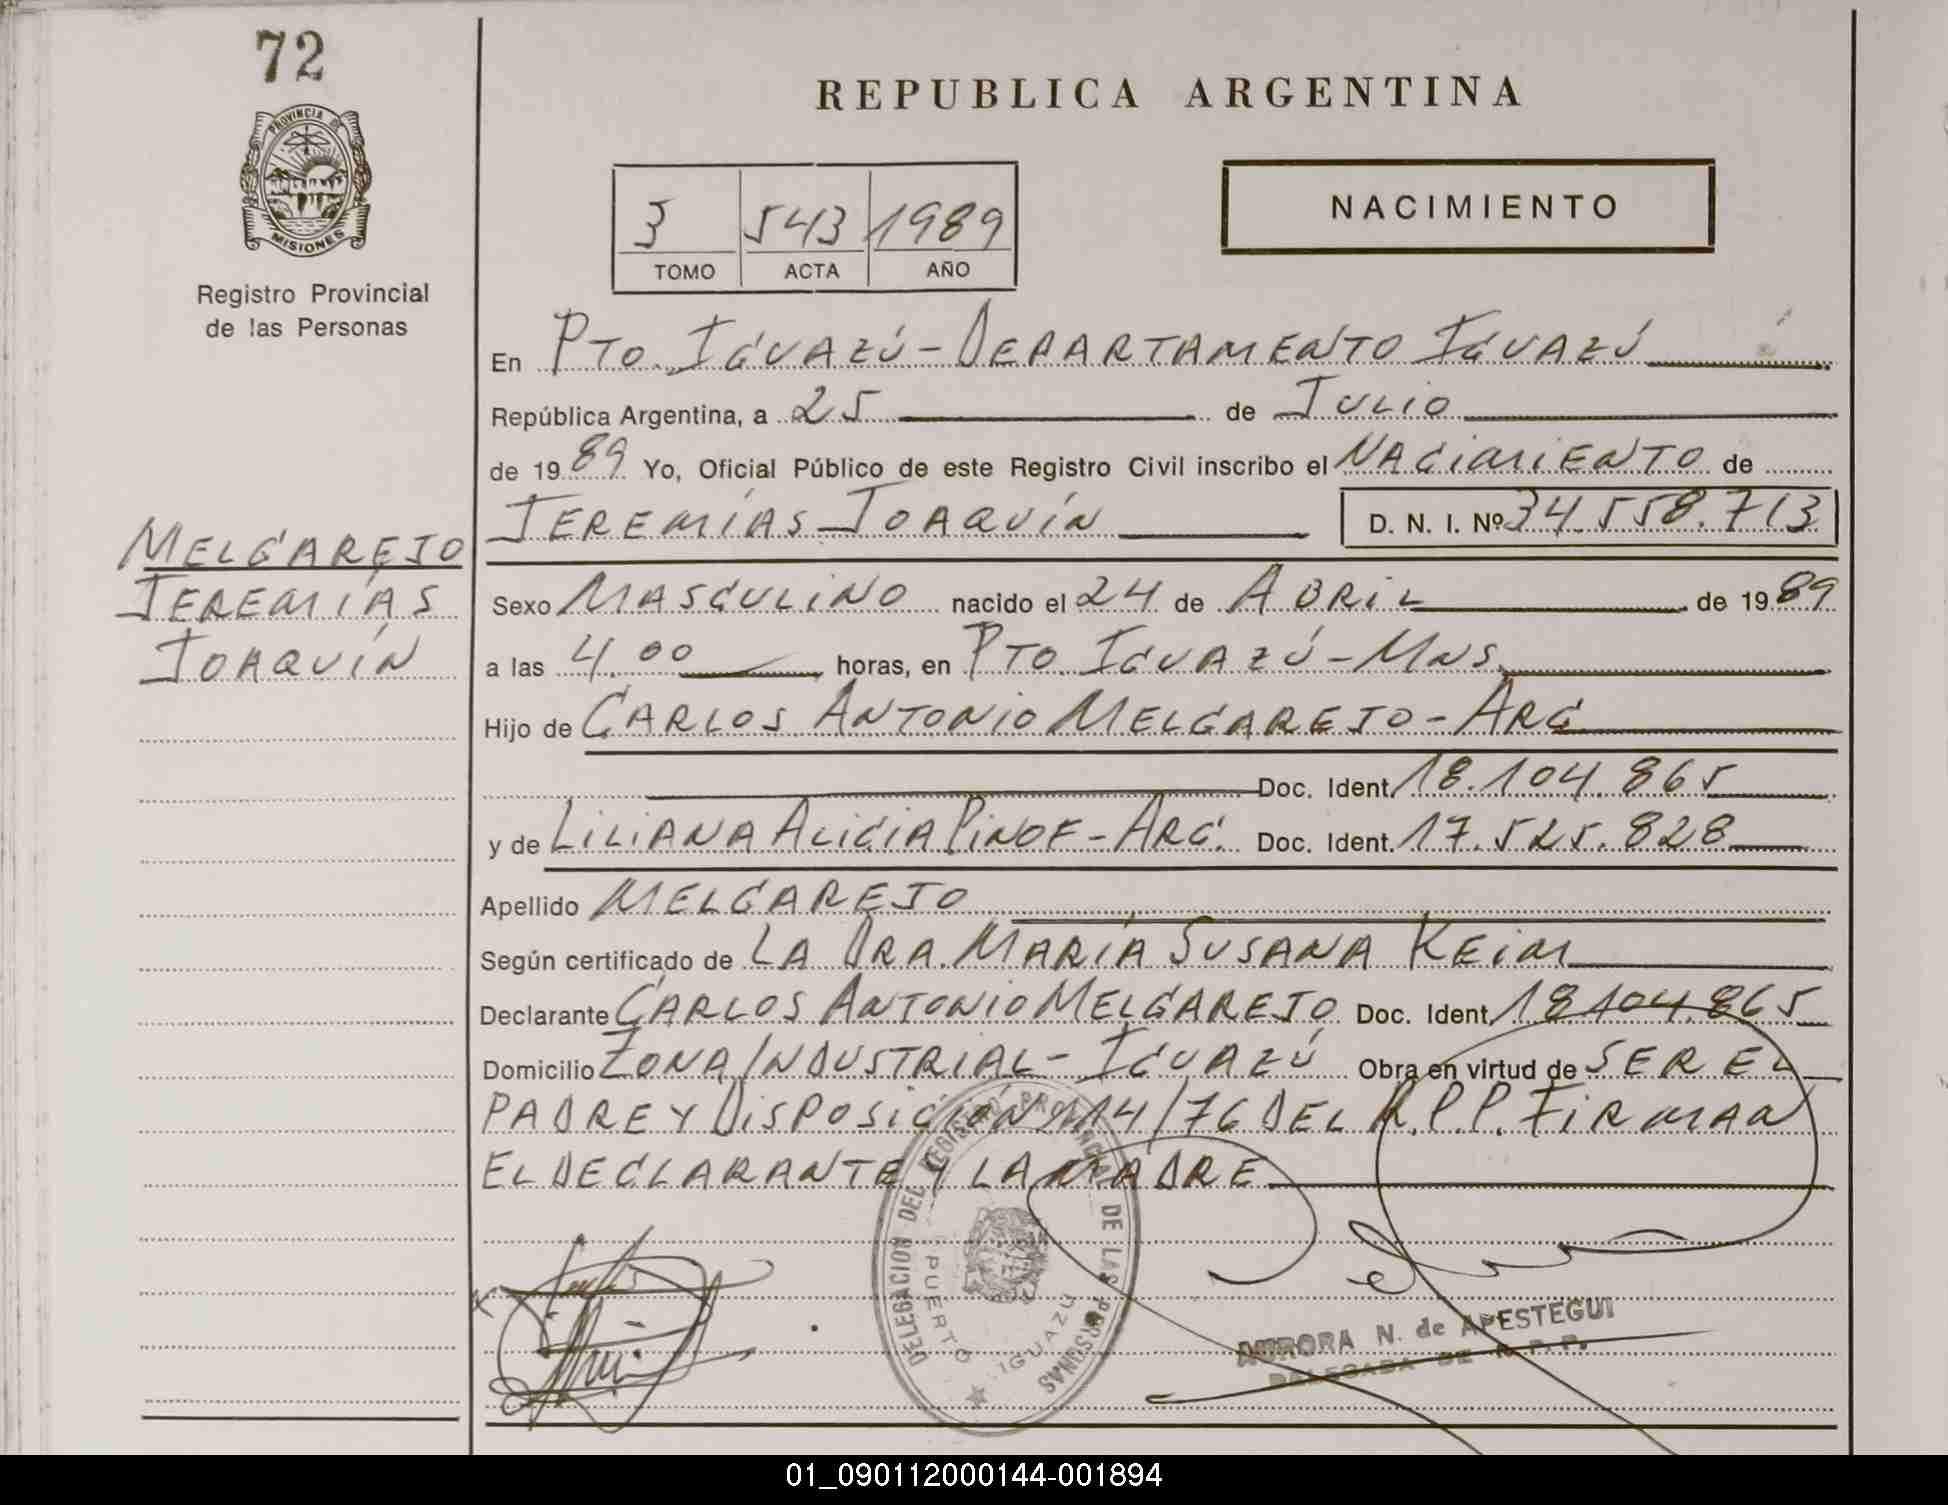 72
PROVINCIA DE
MISIONES
Registro Provincial
de las Personas
REPUBLICA ARGENTINA
3 543 1989
TOMO ACTA AÑO
NACIMIENTO
En PTO. IGUAZÚ - DEPARTAMENTO IGUAZÚ
República Argentina, a 25 de JULIO
de 1989 Yo, Oficial Público de este Registro Civil inscribo el NACIMIENTO de
JEREMÍAS JOAQUÍN D. N. I. Nº 34.558.713
MELGAREJO
JEREMÍAS
JOAQUÍN
Sexo MASCULINO nacido el 24 de ABRIL de 1989
a las 4.00 horas, en PTO. IGUAZÚ - MNS.
Hijo de CARLOS ANTONIO MELGAREJO - ARG
Doc. Ident. 18.104.865
y de LILIANA ALICIA PINOE - ARG. Doc. Ident. 17.525.828
Apellido MELGAREJO
Según certificado de LA DRA. MARÍA SUSANA KEIM
Declarante CARLOS ANTONIO MELGAREJO Doc. Ident. 18.104.865
Domicilio ZONA INDUSTRIAL - IGUAZÚ Obra en virtud de SER EL
PADRE Y DISPOSICION 114/76 DEL R.P.P. FIRMAN
EL DECLARANTE Y LA MADRE
DELEGACION DEL REGISTRO PROVINCIAL DE LAS PERSONAS
PUERTO IGUAZU
AURORA N. de APESTEGUI
DELEGADA DE R. P. P.
01_090112000144-001894